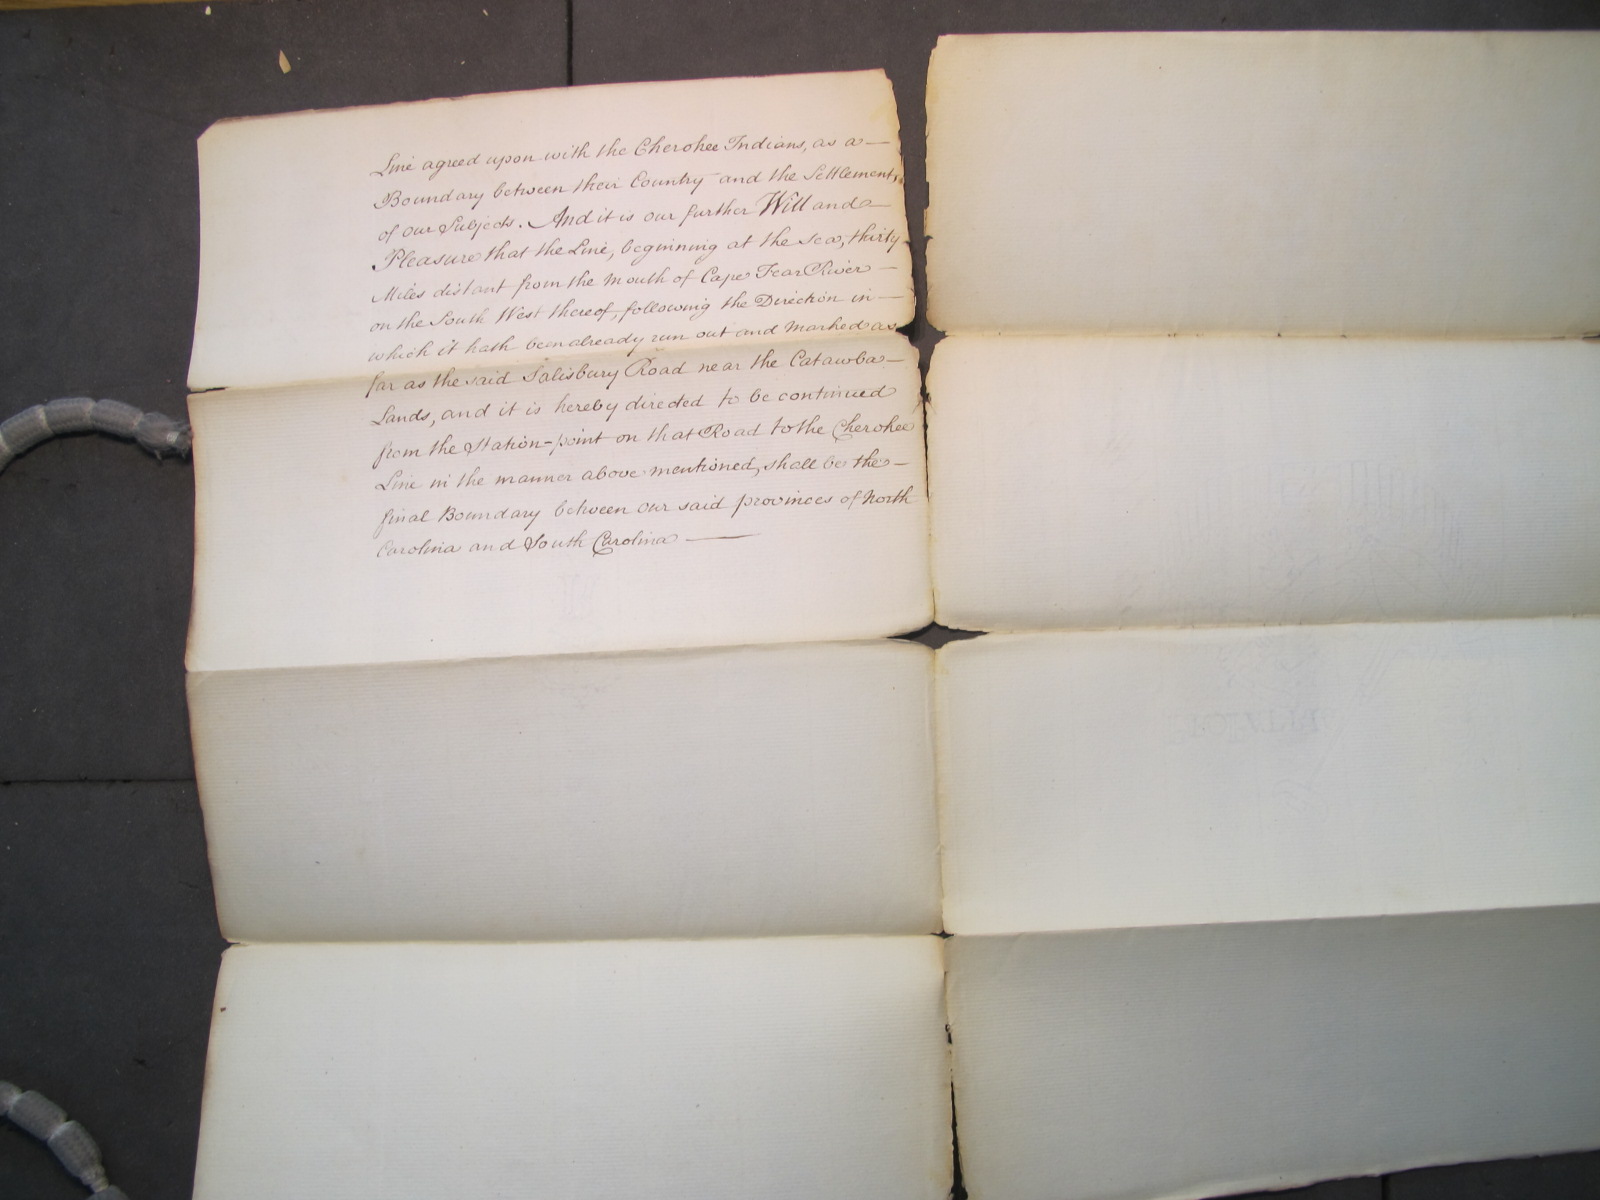 Line agreed upon with the Cherokee Indians, as a —
Boundary between their Country and the Settlements
of our Subjects. And it is our further Will and —
Pleasure that the Line, beginning at the Sea, thirty
Miles distant from the Mouth of Cape Fear River —
on the South West thereof, following the Direction in —
which it hath been already run out and Marked as
far as the said Salisbury Road near the Catawba —
Lands, and it is hereby directed to be continued
from the Station-point on that Road to the Cherokee
Line in the manner above mentioned, shall be the —
final Boundary between our said provinces of North
Carolina and South Carolina ———